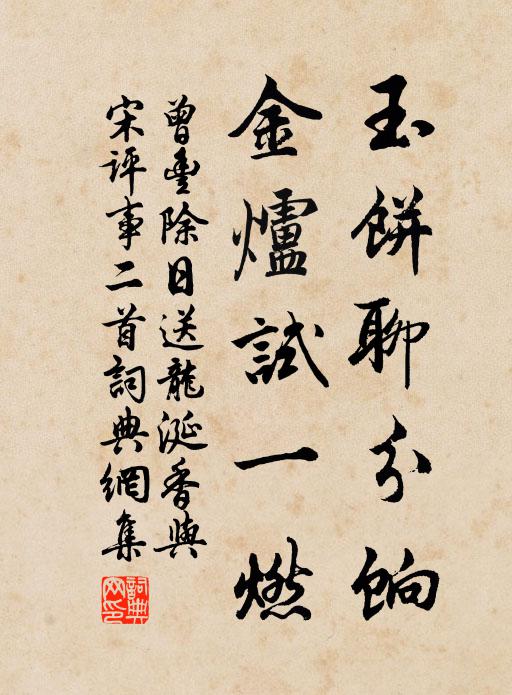 玉餅聊分餉
金爐試一燃
曾豐除日送龍涎香與
宋評事二首詞典網集
詞典網印